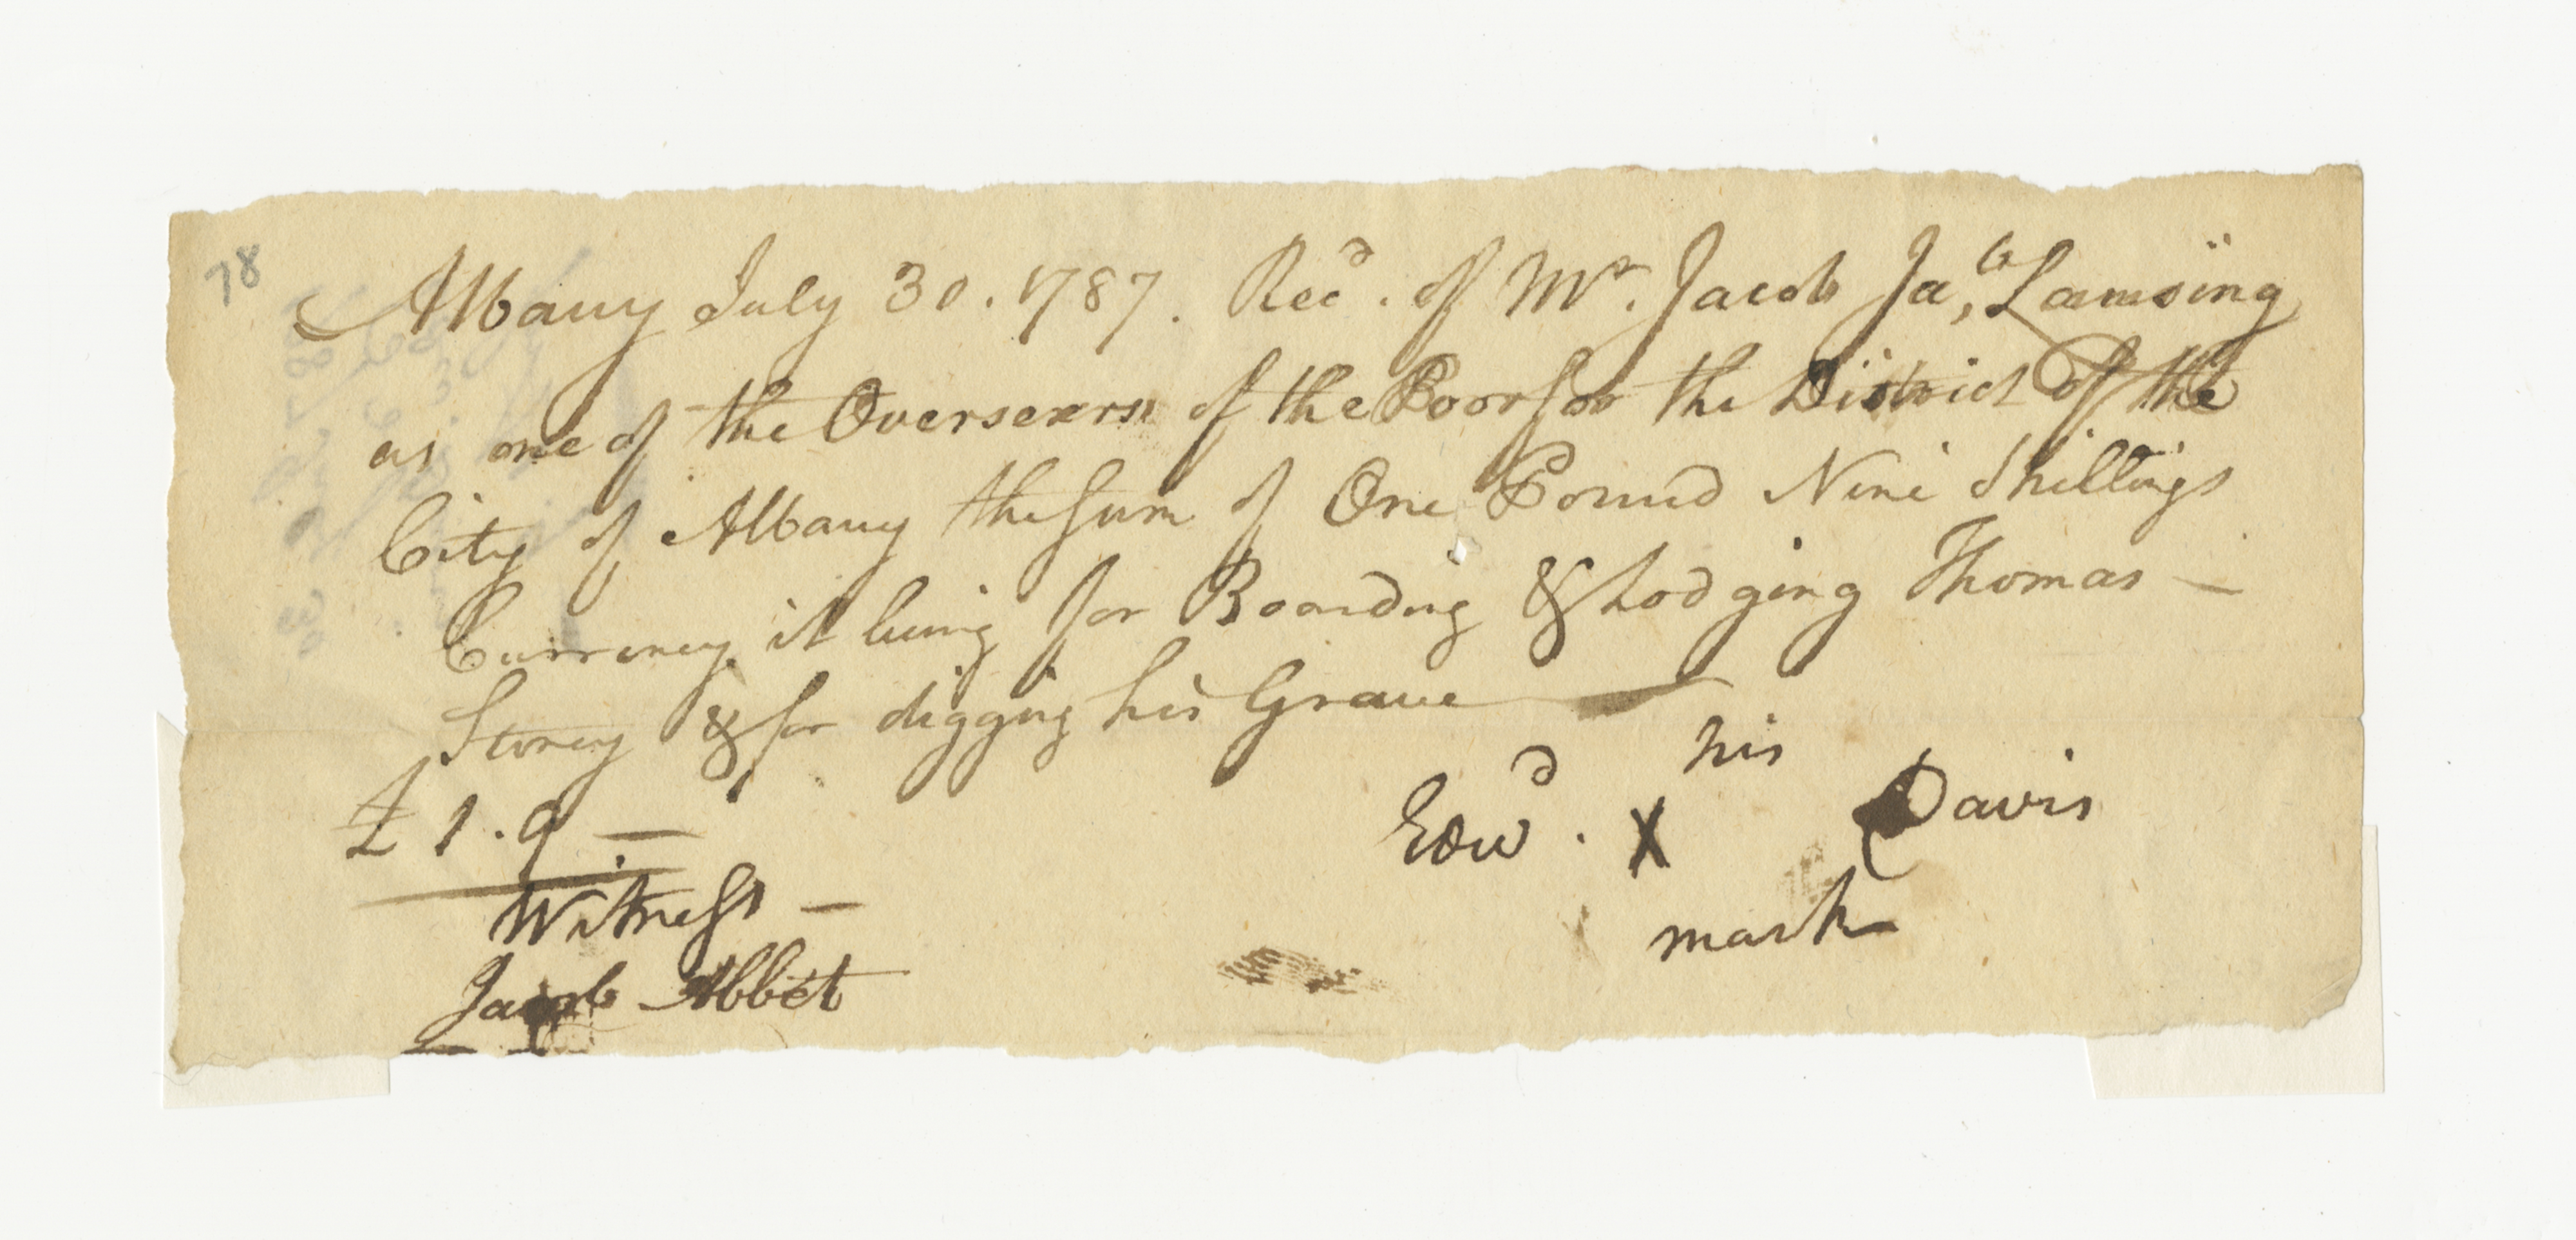 78
Albany July 30. 1787. Recd. of Mr. Jacob Jab, Lansing
as one of the Overseers of the Poor for the District of the
City of Albany the Sum of One Pound Nine Shillings
Currency it being for Boarding & Lodging Thomas —
Storey & for digging his Grave —
his
£ 1 . 9 —
Edwd. X Davis
mark
Witness —
Jacob Abbet